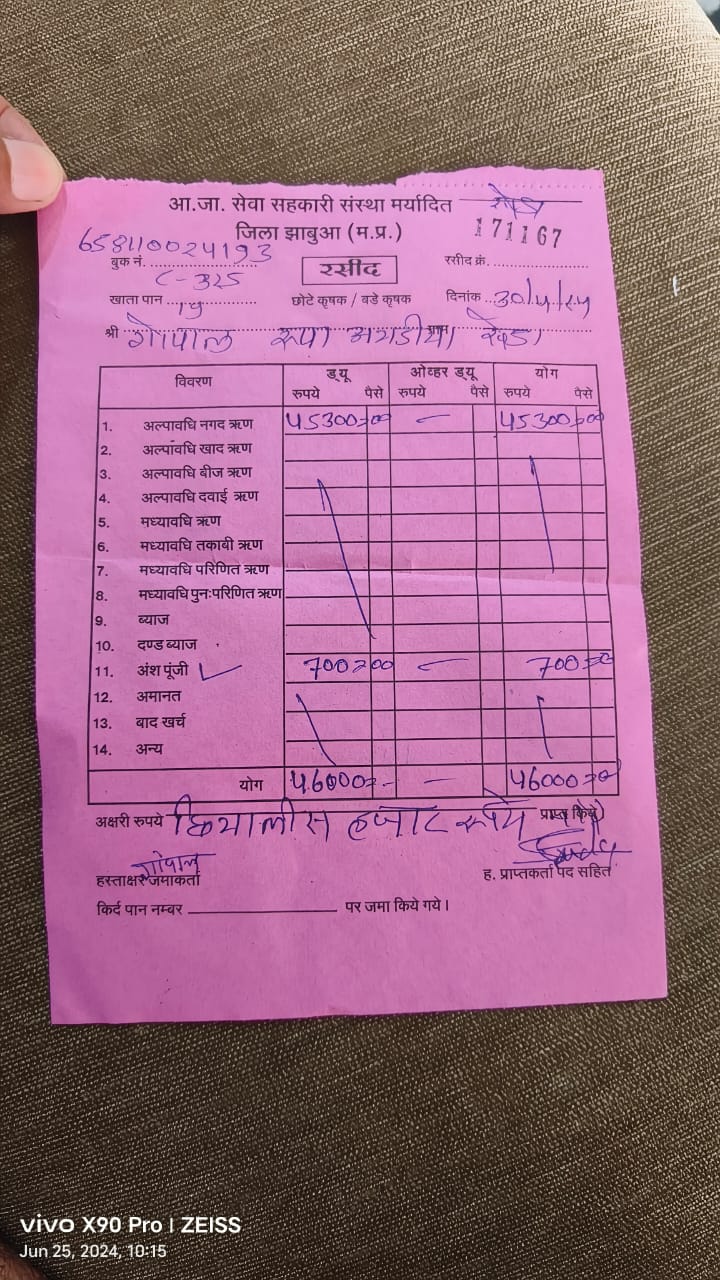 आ.जा. सेवा सहकारी संस्था मर्यादित
जिला झाबुआ (म.प्र.) 171167
658110024193
बुक नं. C-325 रसीद रसीद क्रं.
खाता पान 19 छोटे कृषक / बडे कृषक दिनांक
श्री गोपाल रूपा ग्राम
विवरण ड्यू ओव्हर ड्यू योग
रुपये पैसे रुपये पैसे रुपये पैसे
1. अल्पावधि नगद ऋण 45300=00 — 45300=00
2. अल्पावधि खाद ऋण
3. अल्पावधि बीज ऋण
4. अल्पावधि दवाई ऋण
5. मध्यावधि ऋण
6. मध्यावधि तकाबी ऋण
7. मध्यावधि परिणित ऋण
8. मध्यावधि पुनःपरिणित ऋण
9. ब्याज
10. दण्ड ब्याज
11. अंश पूंजी 700=00 — 700=00
12. अमानत
13. बाद खर्च
14. अन्य
योग 46000=- — 46000=00
अक्षरी रुपये छियालीस हजार रूपये प्राप्त किये
गोपाल
हस्ताक्षर जमाकर्ता ह. प्राप्तकर्ता पद सहित
किर्द पान नम्बर पर जमा किये गये।
vivo X90 Pro | ZEISS
Jun 25, 2024, 10:15